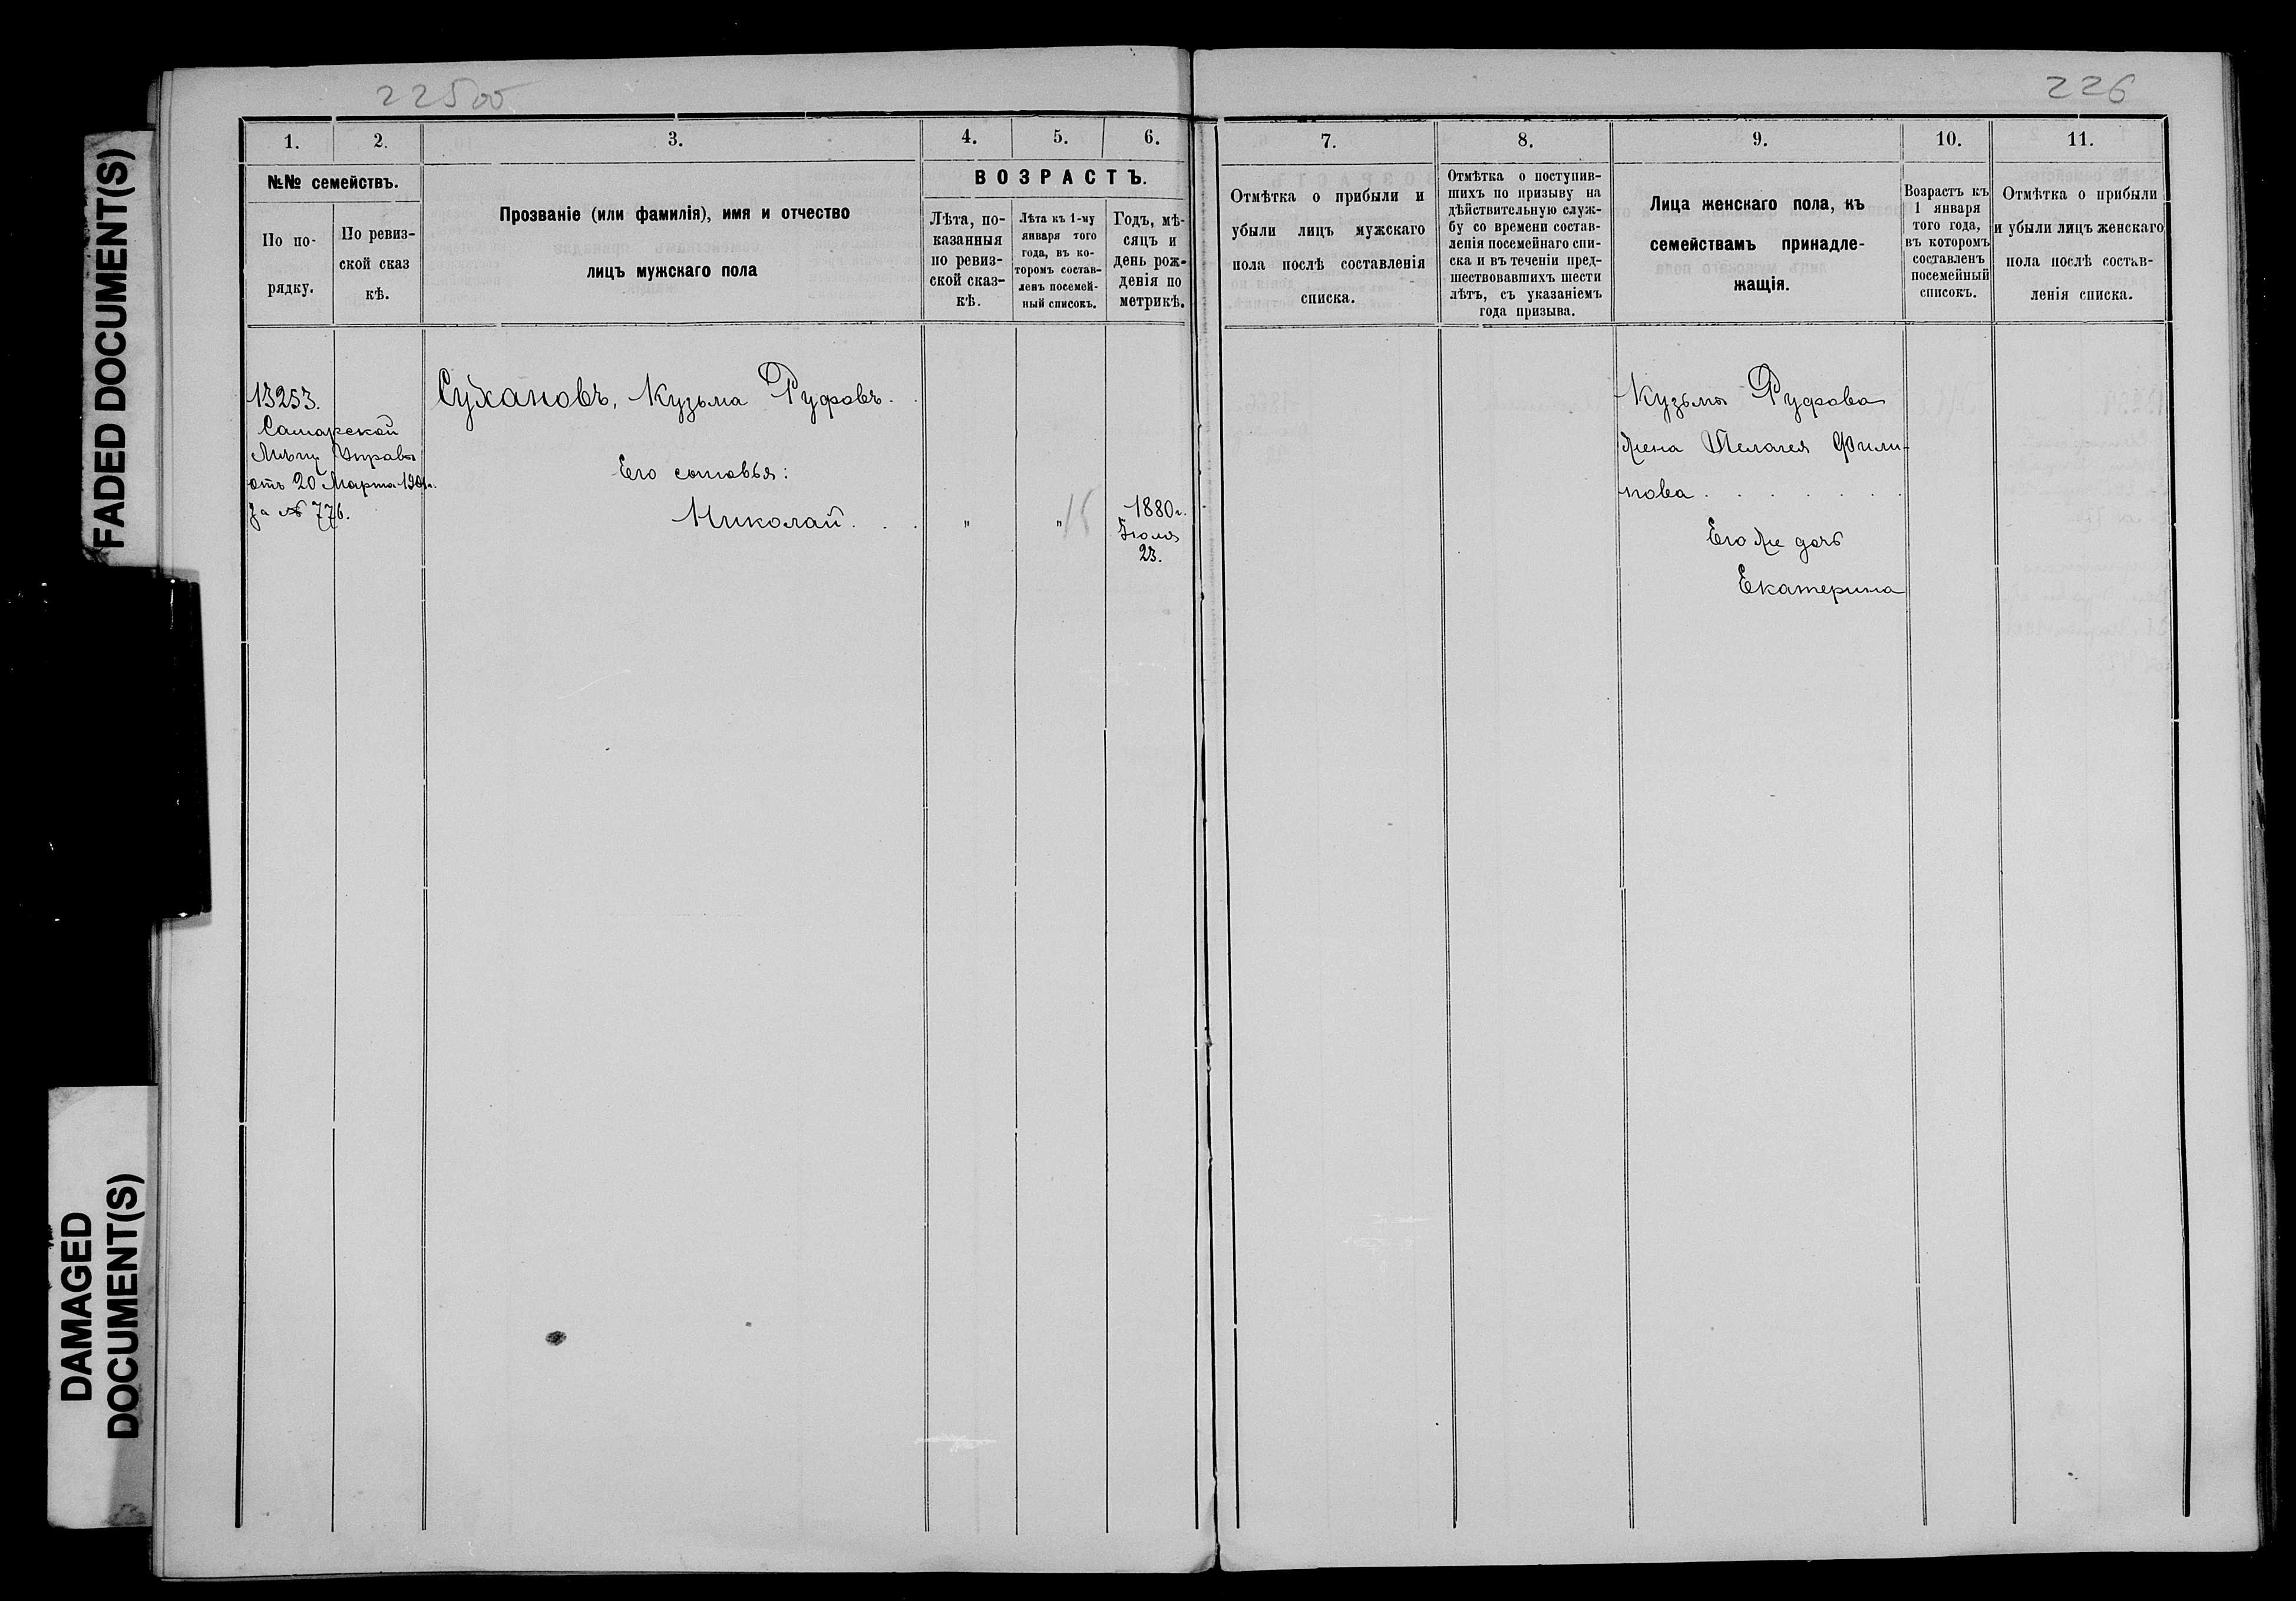 FADED DOCUMENT(S)
DAMAGED
DOCUMENT(S)
225об
1. 2. 3. 4. 5. 6.
№№ семействъ.
По по-
рядку.
По ревиз-
ской сказ
кѣ.
Прозваніе (или фамилія), имя и отчество
лицъ мужскаго пола
ВОЗРАСТЪ.
Лѣта, по-
казанныя
по ревиз-
ской сказ-
кѣ.
Лѣта къ 1-му
января того
года, въ ко-
торомъ состав-
ленъ посемей-
ный списокъ.
Годъ, мѣ-
сяцъ и
день рож-
денія по
метрикѣ.
13253.
Самарской
Мѣщ Управы
отъ 20 Марта 1901г.
за № 776.
Сухановъ, Кузьма Руфовъ.
Его сыновья:
Николай . . . " "
1880г.
Іюля
23.
226
7. 8. 9. 10. 11.
Отмѣтка о прибыли и
убыли лицъ мужскаго
пола послѣ составленія
списка.
Отмѣтка о поступив-
шихъ по призыву на
дѣйствительную служ-
бу со времени состав-
ленія посемейнаго спи-
ска и въ теченіи пред-
шествовавшихъ шести
лѣтъ, съ указаніемъ
года призыва.
Лица женскаго пола, къ
семействамъ принадле-
жащія.
Возрастъ къ
1 января
того года,
въ которомъ
составленъ
посемейный
списокъ.
Отмѣтка о прибыли
и убыли лицъ женскаго
пола послѣ состав-
ленія списка.
Кузьмы Руфова
жена Пелагея Фили-
пова . . . . . . .
Его же дочь
Екатерина